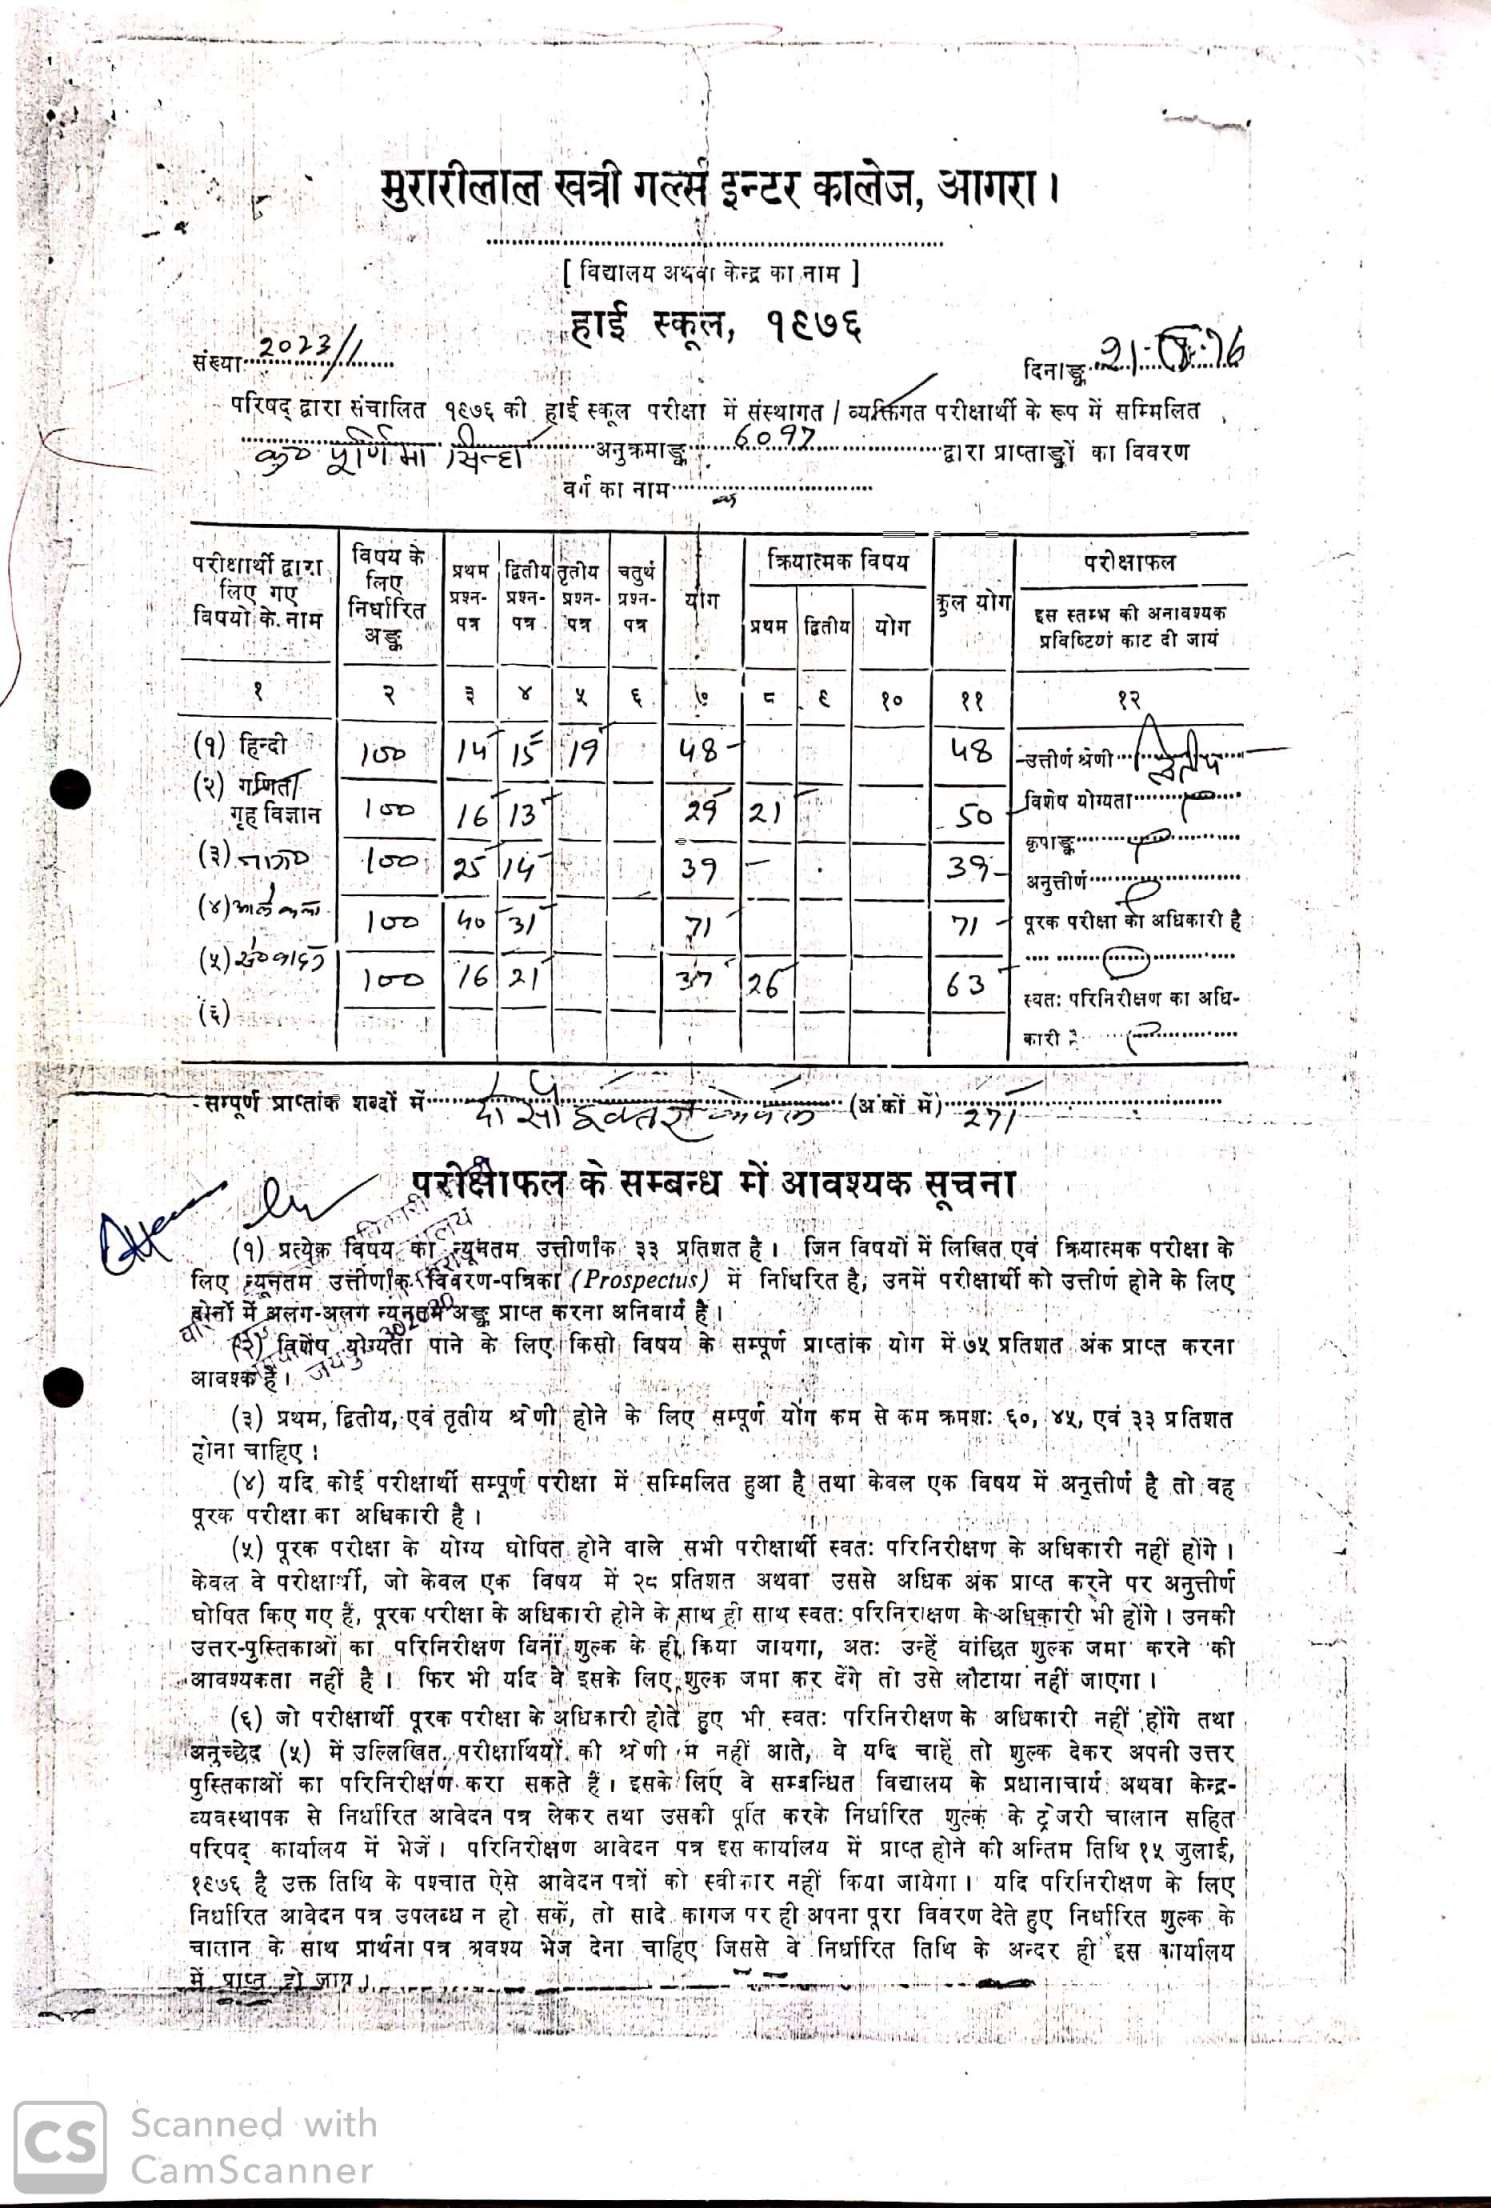 मुरारीलाल खत्री गर्ल्स इन्टर कालेज, आगरा।
[ विद्यालय अथवा केन्द्र का नाम ]
हाई स्कूल, १९७६
संख्या 2023/1
दिनाङ्क 21
परिषद् द्वारा संचालित १९७६ की हाई स्कूल परीक्षा में संस्थागत / व्यक्तिगत परीक्षार्थी के रूप में सम्मिलित
कु० पूर्णिमा सिन्हा अनुक्रमाङ्क 6097 द्वारा प्राप्ताङ्कों का विवरण
वर्ग का नाम
परीक्षार्थी द्वारा लिए गए विषयों के नाम | विषय के लिए निर्धारित अङ्क | प्रथम प्रश्न-पत्र | द्वितीय प्रश्न-पत्र | तृतीय प्रश्न-पत्र | चतुर्थ प्रश्न-पत्र | योग | क्रियात्मक विषय | प्रथम | द्वितीय | योग | कुल योग | परीक्षाफल
इस स्तम्भ की अनावश्यक प्रविष्टियां काट दी जायं
१ २ ३ ४ ५ ६ ७ ८ ९ १० ११ १२
(१) हिन्दी 100 14 15 19 48 48 उत्तीर्ण श्रेणी द्वितीय
(२) गणित/
गृह विज्ञान 100 16 13 29 21 50 विशेष योग्यता
कृपाङ्क
(३) 100 25 14 39 — 39 अनुत्तीर्ण
(४) 100 40 31 71 71 पूरक परीक्षा का अधिकारी है
(५) 100 16 21 37 26 63 स्वतः परिनिरीक्षण का अधि-
(६) कारी है
सम्पूर्ण प्राप्तांक शब्दों में दो सौ इकहत्तर केवल (अंकों में) 271
परीक्षाफल के सम्बन्ध में आवश्यक सूचना
(१) प्रत्येक विषय का न्यूनतम उत्तीर्णांक ३३ प्रतिशत है। जिन विषयों में लिखित एवं क्रियात्मक परीक्षा के
लिए न्यूनतम उत्तीर्णांक विवरण-पत्रिका (Prospectus) में निर्धारित है, उनमें परीक्षार्थी को उत्तीर्ण होने के लिए
दोनों में अलग-अलग न्यूनतम अङ्क प्राप्त करना अनिवार्य है।
(२) विशेष योग्यता पाने के लिए किसी विषय के सम्पूर्ण प्राप्तांक योग में ७५ प्रतिशत अंक प्राप्त करना
आवश्यक है।
(३) प्रथम, द्वितीय, एवं तृतीय श्रेणी होने के लिए सम्पूर्ण योग कम से कम क्रमशः ६०, ४५, एवं ३३ प्रतिशत
होना चाहिए।
(४) यदि कोई परीक्षार्थी सम्पूर्ण परीक्षा में सम्मिलित हुआ है तथा केवल एक विषय में अनुत्तीर्ण है तो वह
पूरक परीक्षा का अधिकारी है।
(५) पूरक परीक्षा के योग्य घोषित होने वाले सभी परीक्षार्थी स्वतः परिनिरीक्षण के अधिकारी नहीं होंगे।
केवल वे परीक्षार्थी, जो केवल एक विषय में २८ प्रतिशत अथवा उससे अधिक अंक प्राप्त करने पर अनुत्तीर्ण
घोषित किए गए हैं, पूरक परीक्षा के अधिकारी होने के साथ ही साथ स्वतः परिनिरीक्षण के अधिकारी भी होंगे। उनकी
उत्तर-पुस्तिकाओं का परिनिरीक्षण बिना शुल्क के ही किया जायगा, अतः उन्हें वांछित शुल्क जमा करने की
आवश्यकता नहीं है। फिर भी यदि वे इसके लिए शुल्क जमा कर देंगे तो उसे लौटाया नहीं जाएगा।
(६) जो परीक्षार्थी पूरक परीक्षा के अधिकारी होते हुए भी स्वतः परिनिरीक्षण के अधिकारी नहीं होंगे तथा
अनुच्छेद (५) में उल्लिखित परीक्षार्थियों की श्रेणी में नहीं आते, वे यदि चाहें तो शुल्क देकर अपनी उत्तर
पुस्तिकाओं का परिनिरीक्षण करा सकते हैं। इसके लिए वे सम्बन्धित विद्यालय के प्रधानाचार्य अथवा केन्द्र-
व्यवस्थापक से निर्धारित आवेदन पत्र लेकर तथा उसकी पूर्ति करके निर्धारित शुल्क के ट्रेजरी चालान सहित
परिषद् कार्यालय में भेजें। परिनिरीक्षण आवेदन पत्र इस कार्यालय में प्राप्त होने की अन्तिम तिथि १५ जुलाई,
१९७६ है उक्त तिथि के पश्चात ऐसे आवेदन पत्रों को स्वीकार नहीं किया जायेगा। यदि परिनिरीक्षण के लिए
निर्धारित आवेदन पत्र उपलब्ध न हो सकें, तो सादे कागज पर ही अपना पूरा विवरण देते हुए निर्धारित शुल्क के
चालान के साथ प्रार्थना पत्र अवश्य भेज देना चाहिए जिससे वे निर्धारित तिथि के अन्दर ही इस कार्यालय
में प्राप्त हो जाय।
CS Scanned with
CamScanner